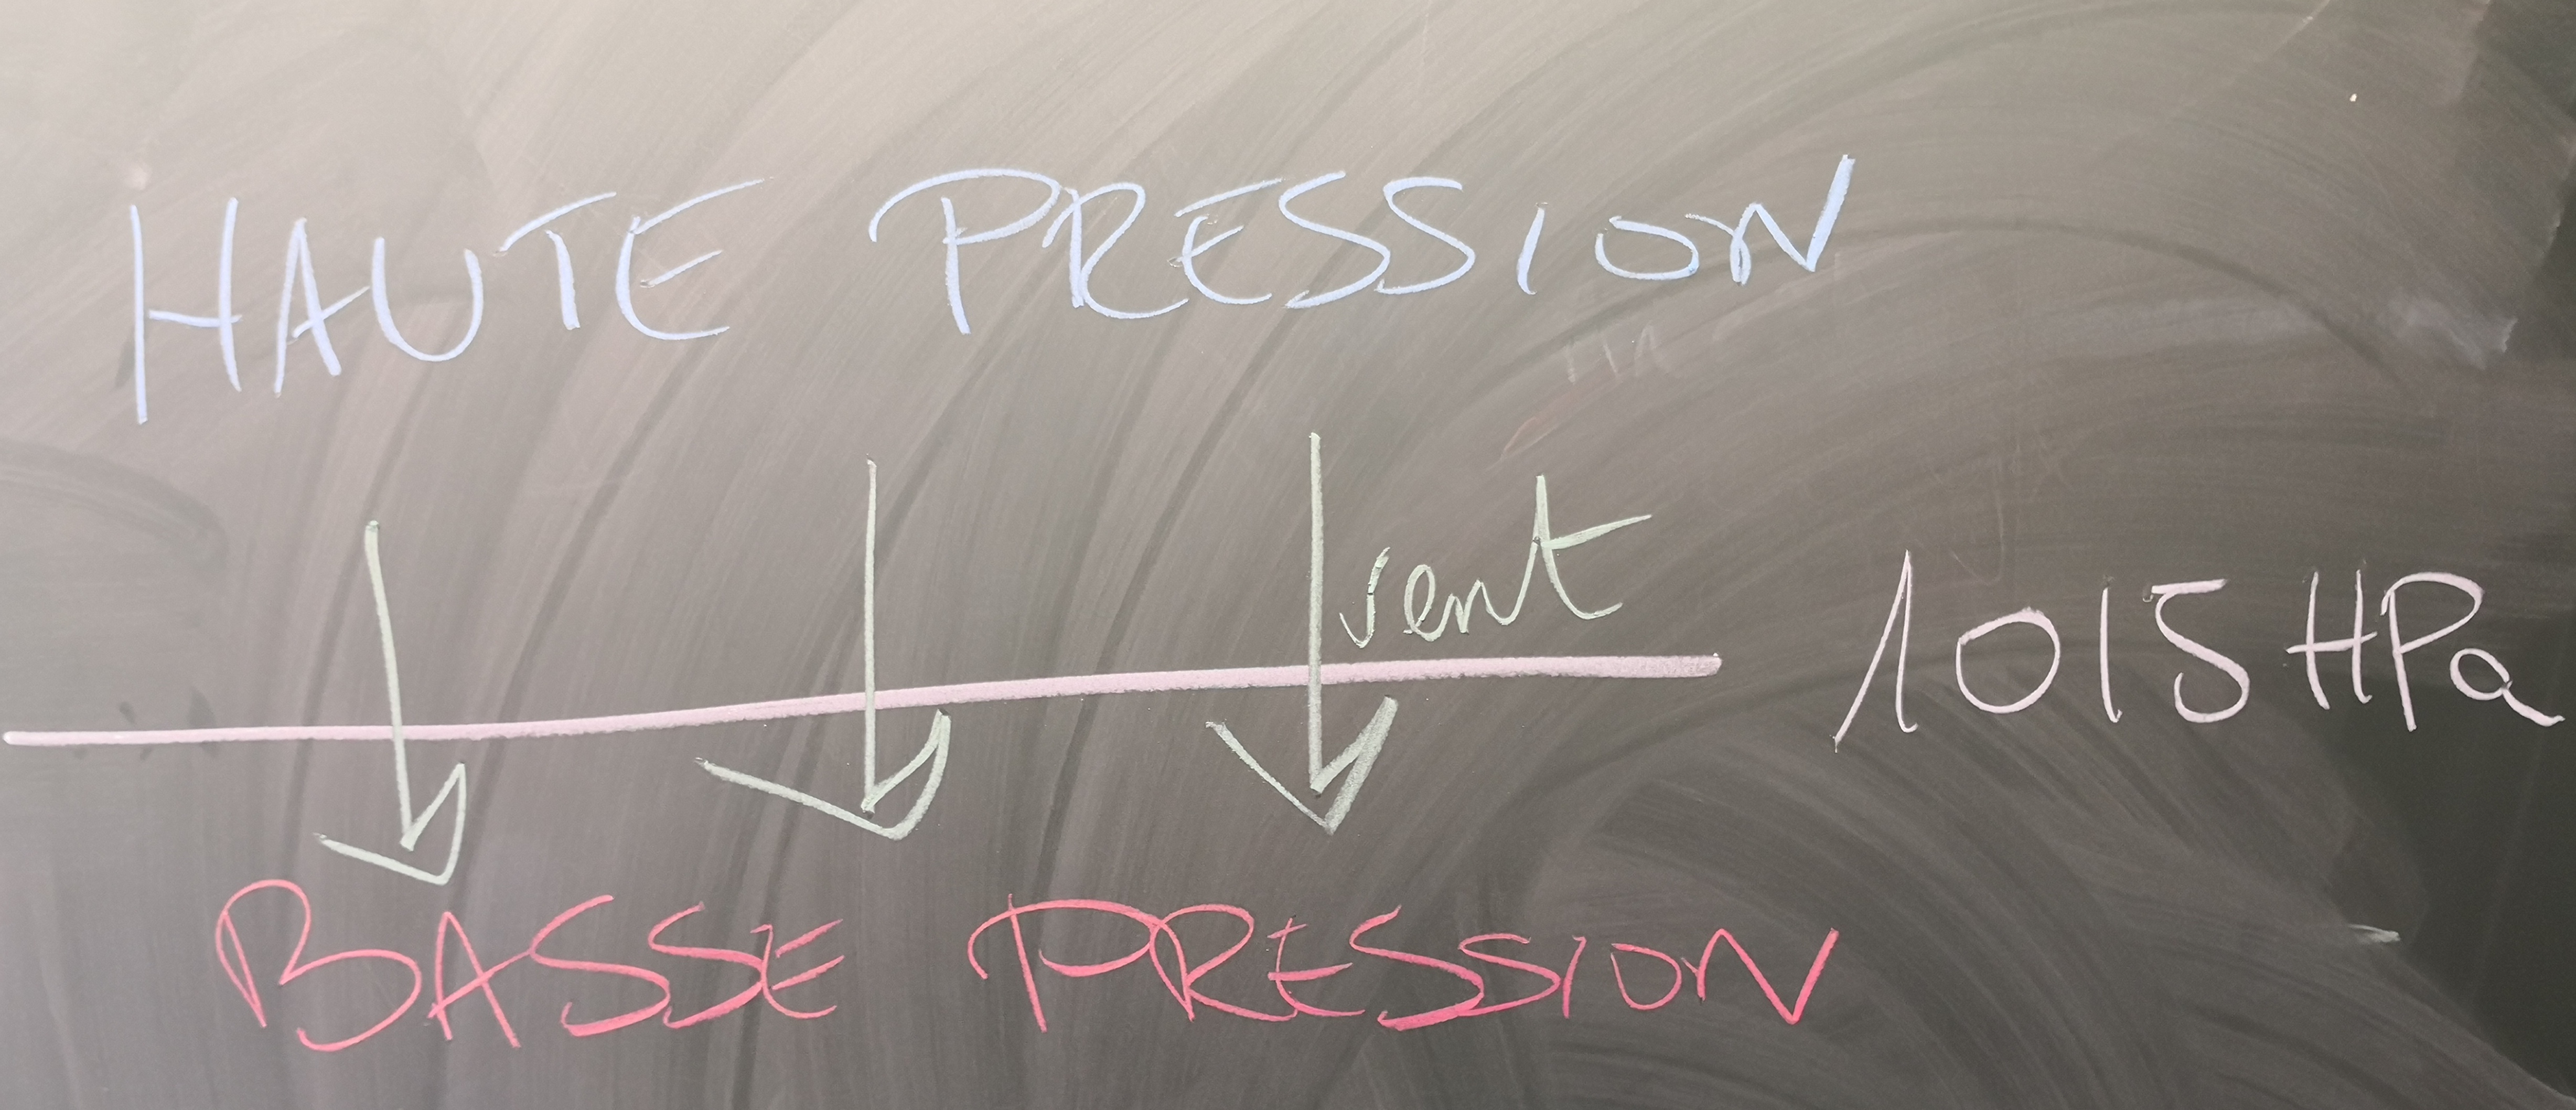 HAUTE PRESSION
vent
1015 HPa
BASSE PRESSION